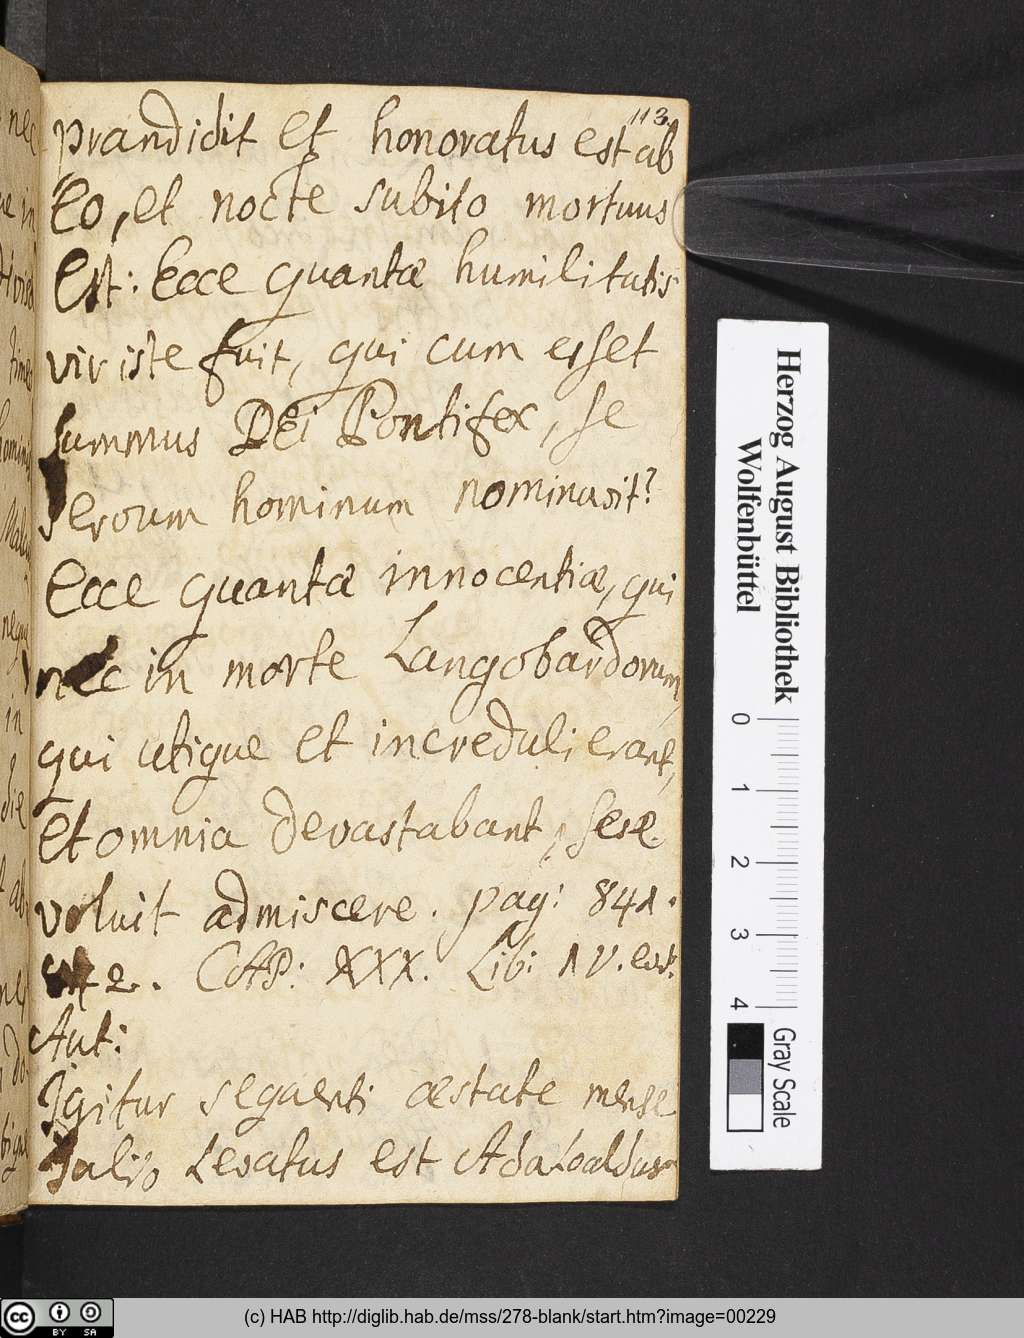 113.
prandidit et honoratus est ab
Eo, et nocte subito mortuus
Est: Ecce quantæ humilitatis
vir iste fuit, qui cum esset
summus DEi Pontifex, se
servum hominum nominavit?
Ecce quantæ innocentiæ, qui
nec in morte Langobardorum,
qui utique et increduli erant,
Et omnia devastabant, sese
voluit admiscere. pag: 841.
et 2. CAP: XXX. Lib: IV.
Aut:
Igitur sequenti æstate mense
Julio Levatus est Adaloaldus
Herzog August Bibliothek
Wolfenbüttel
0 1 2 3 4
Gray Scale
cc BY SA
(c) HAB http://diglib.hab.de/mss/278-blank/start.htm?image=00229